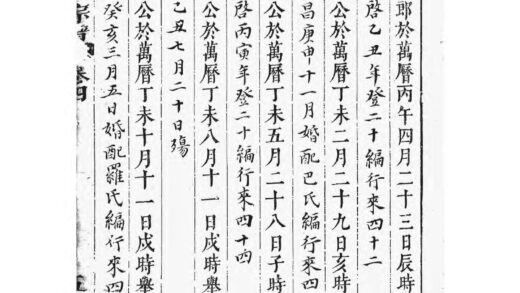 郎於萬曆丙午四月二十三日辰時
啓乙丑年登二十編行來四十二
公於萬曆丁未二月二十九日亥時
昌庚申十一月婚配巴氏編行來四
公於萬曆丁未五月二十八日子時
啓丙寅年登二十編行來四十四
公於萬曆丁未八月十一日戌時舉
乙丑七月二十日殤
公於萬曆丁未十月十一日戌時舉
癸亥三月五日婚配羅氏編行來四
宗譜 卷四